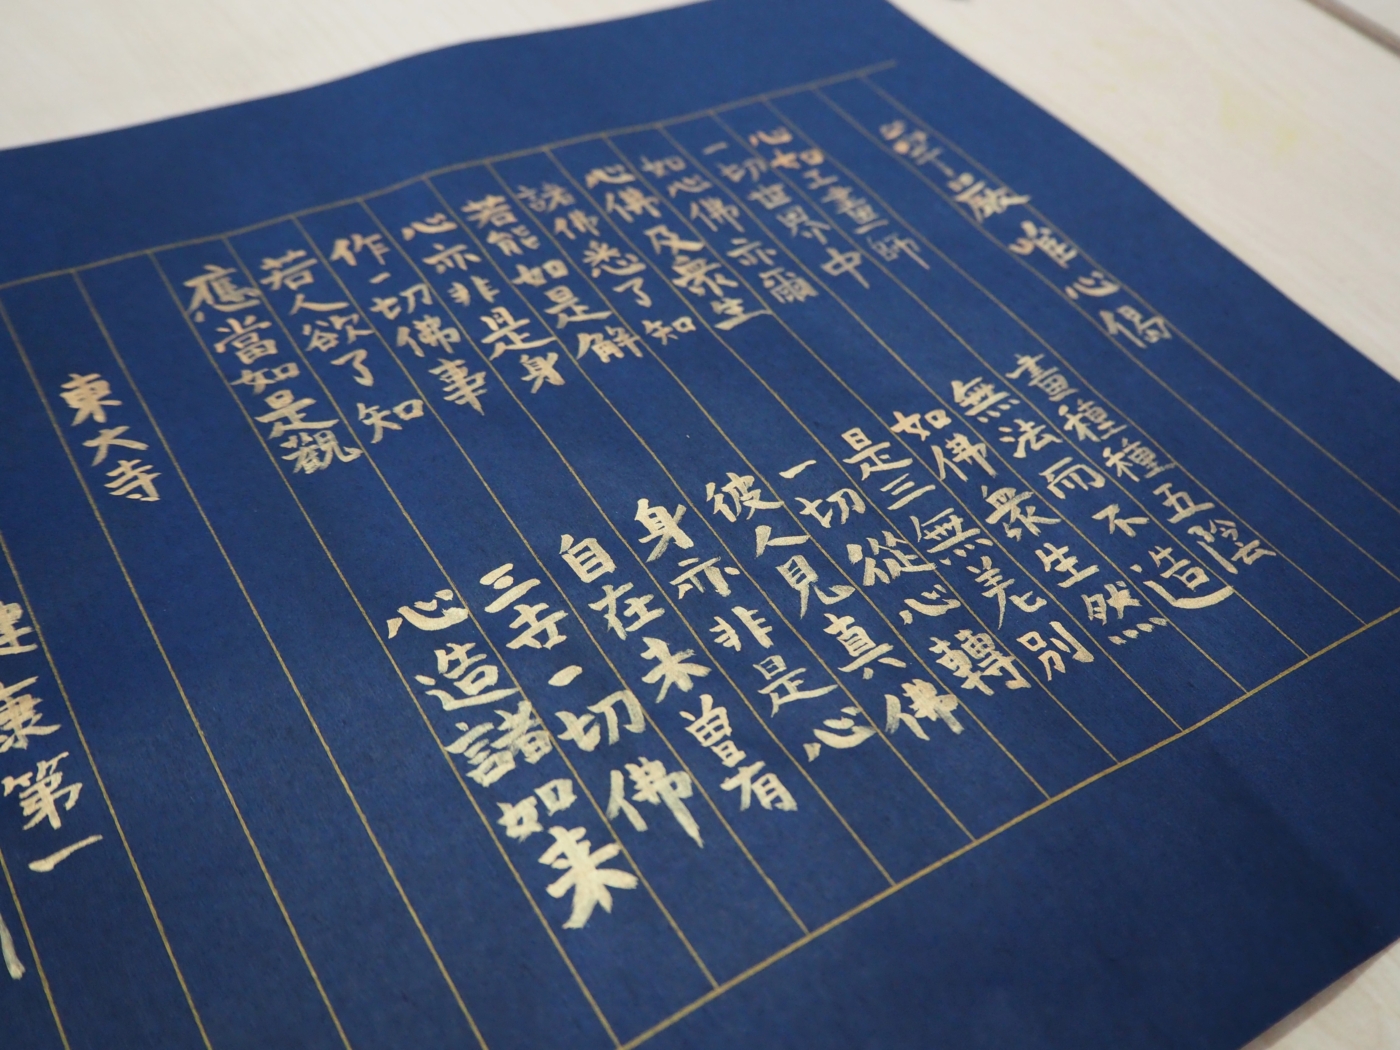 華厳唯心偈
心如工畫師 畫種種五陰
一切世界中 無法而不造
如心佛亦爾 如佛衆生然
心佛及衆生 是三無差別
諸佛悉了知 一切從心轉
若能如是解 彼人見真佛
心亦非是身 身亦非是心
作一切佛事 自在未曽有
若人欲了知 三世一切佛
應當如是觀 心造諸如来
東大寺
健康第一